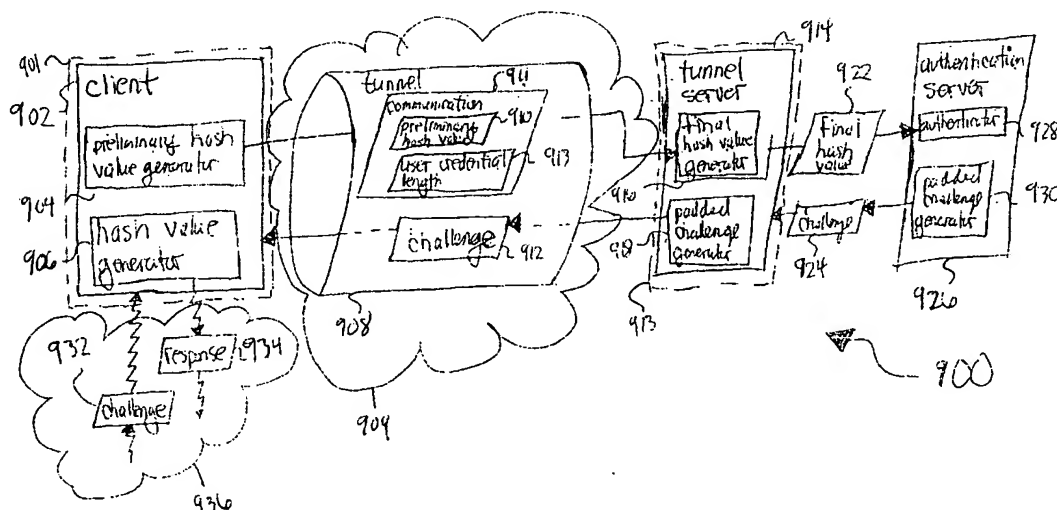 901
902
client
preliminary hash
value generator
904
906
hash value
generator
tunnel
911
communication
preliminary
hash value
910
user credential
length
913
challenge
912
908
909
914
tunnel
server
final
hash value
generator
916
padded
challenge
generator
918
913
922
final
hash
value
challenge
924
authentication
server
authenticator
928
padded
challenge
generator
930
926
932
challenge
response
934
936
900